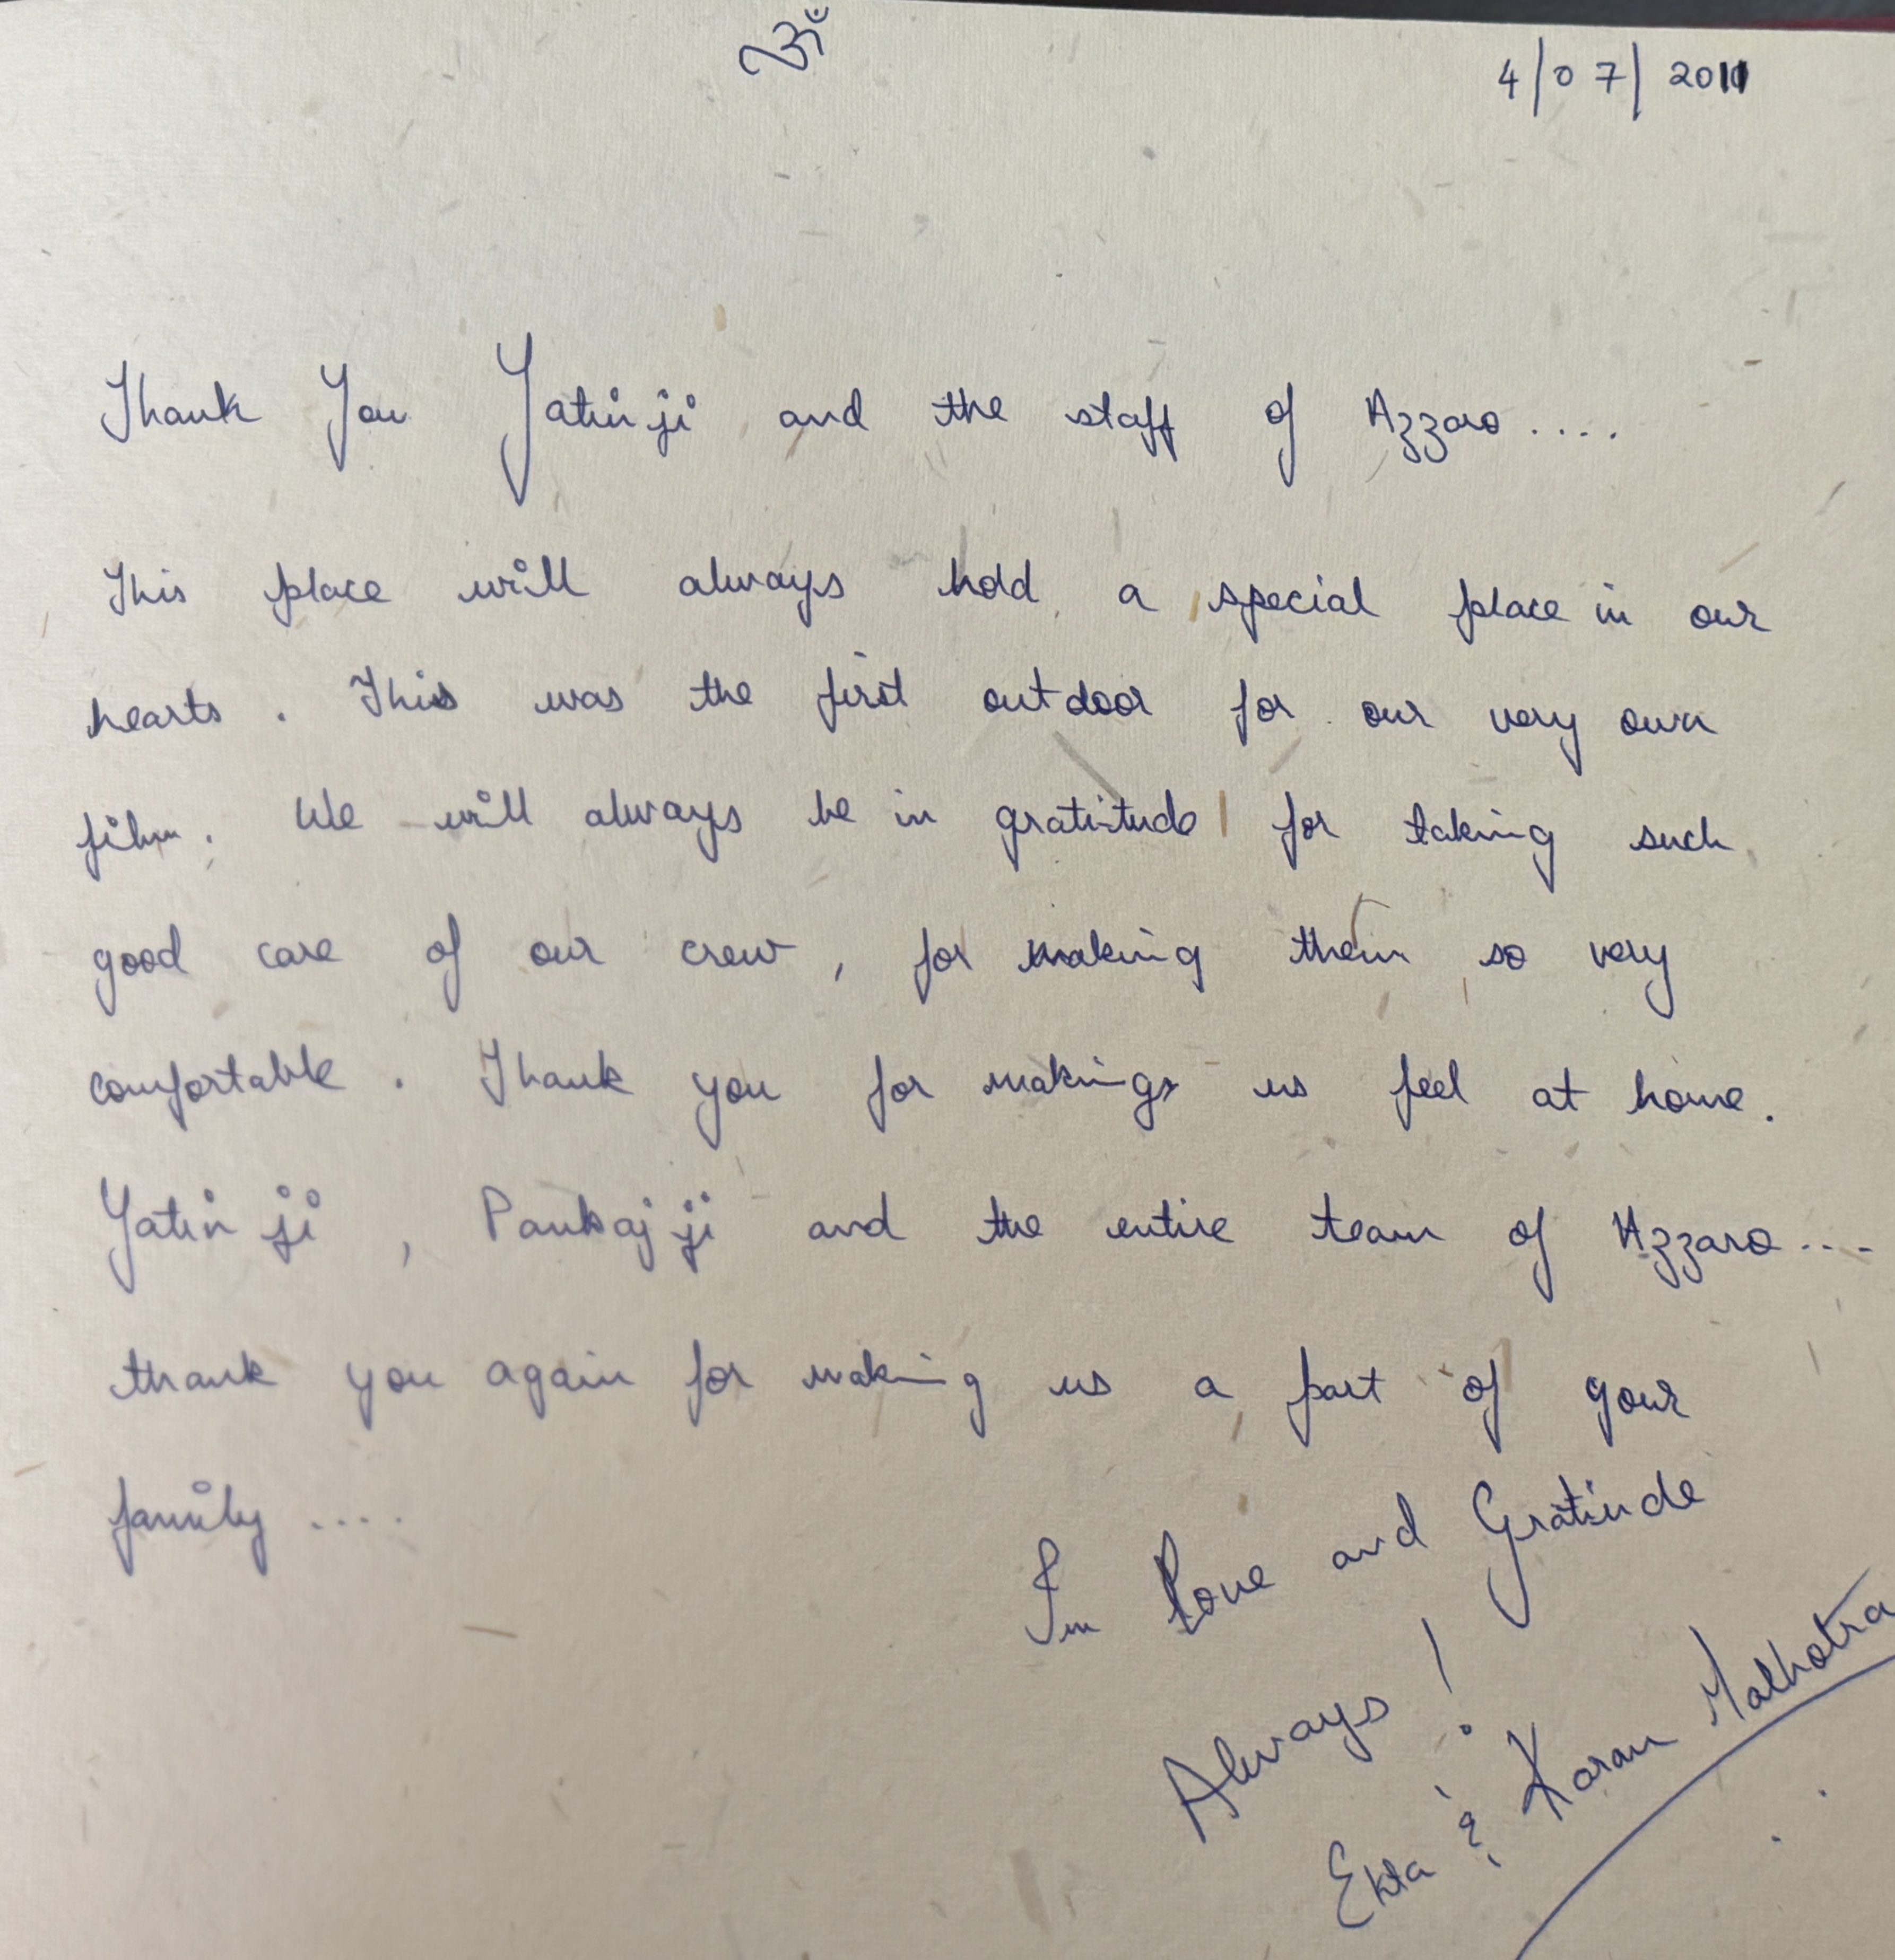 ॐ
4/07/2011
Thank You Yatin ji and the staff of Azzaro ....
This place will always hold a special place in our
hearts. This was the first outdoor for our very own
film. We will always be in gratitude for taking such
good care of our crew, for making them so very
comfortable. Thank you for making us feel at home.
Yatin ji, Pankaj ji and the entire team of Azzaro ....
thank you again for making us a part of your
family ....
In Love and Gratitude
Always!
Ekta & Karan Malhotra